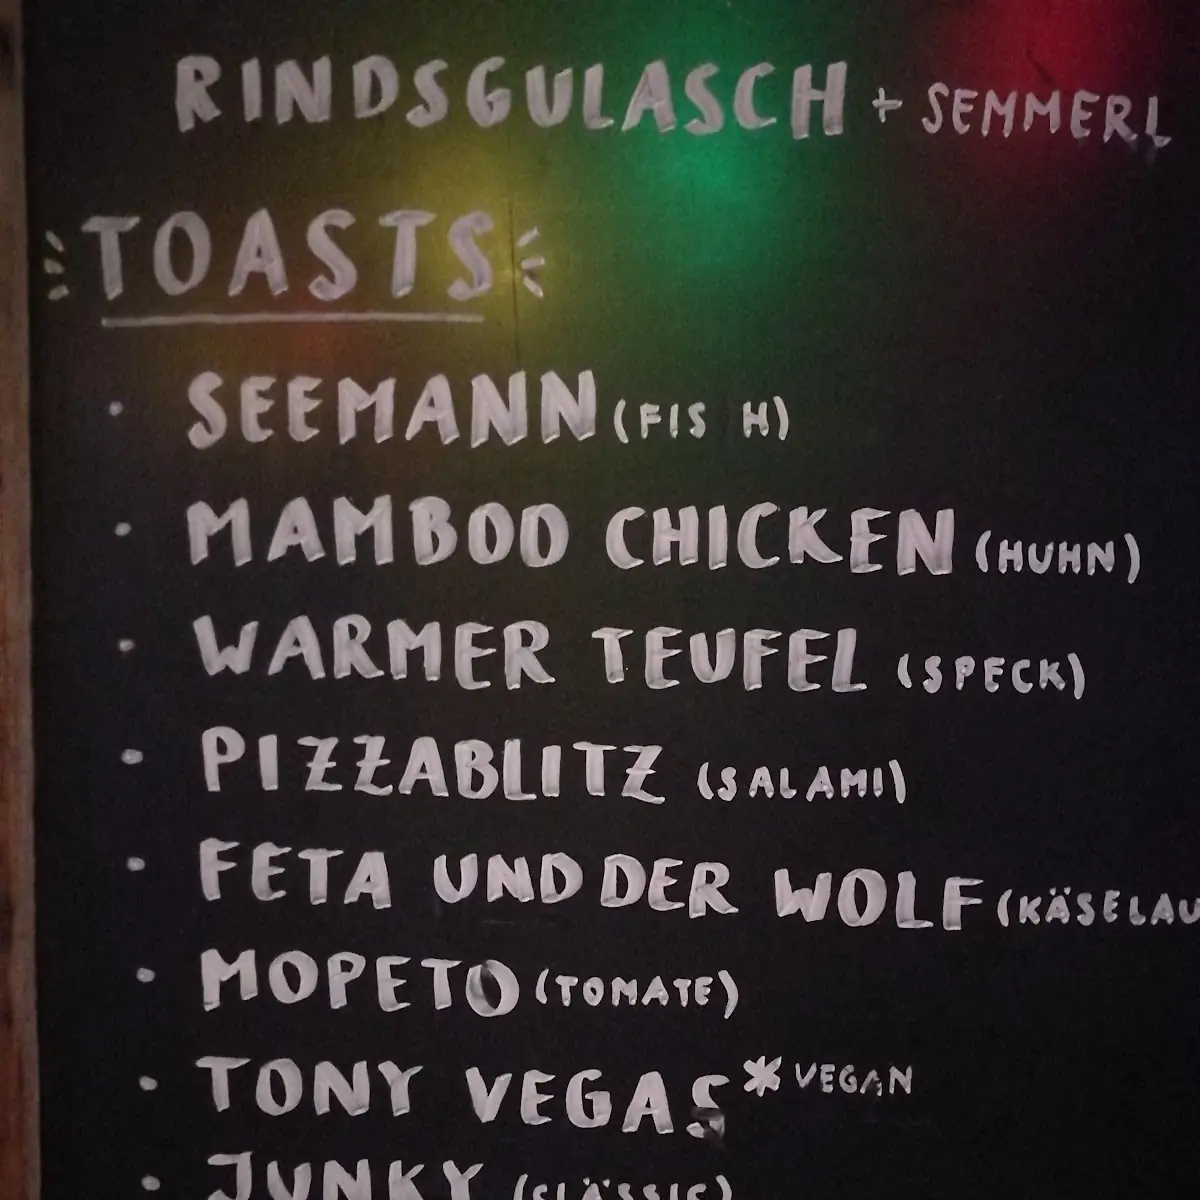 RINDSGULASCH + SEMMERL
TOASTS
• SEEMANN (FIS H)
• MAMBOO CHICKEN (HUHN)
• WARMER TEUFEL (SPECK)
• PIZZABLITZ (SALAMI)
• FETA UND DER WOLF (KÄSELAU
• MOPETO (TOMATE)
• TONY VEGAS * VEGAN
• JUNKY (CLÄSSIC)